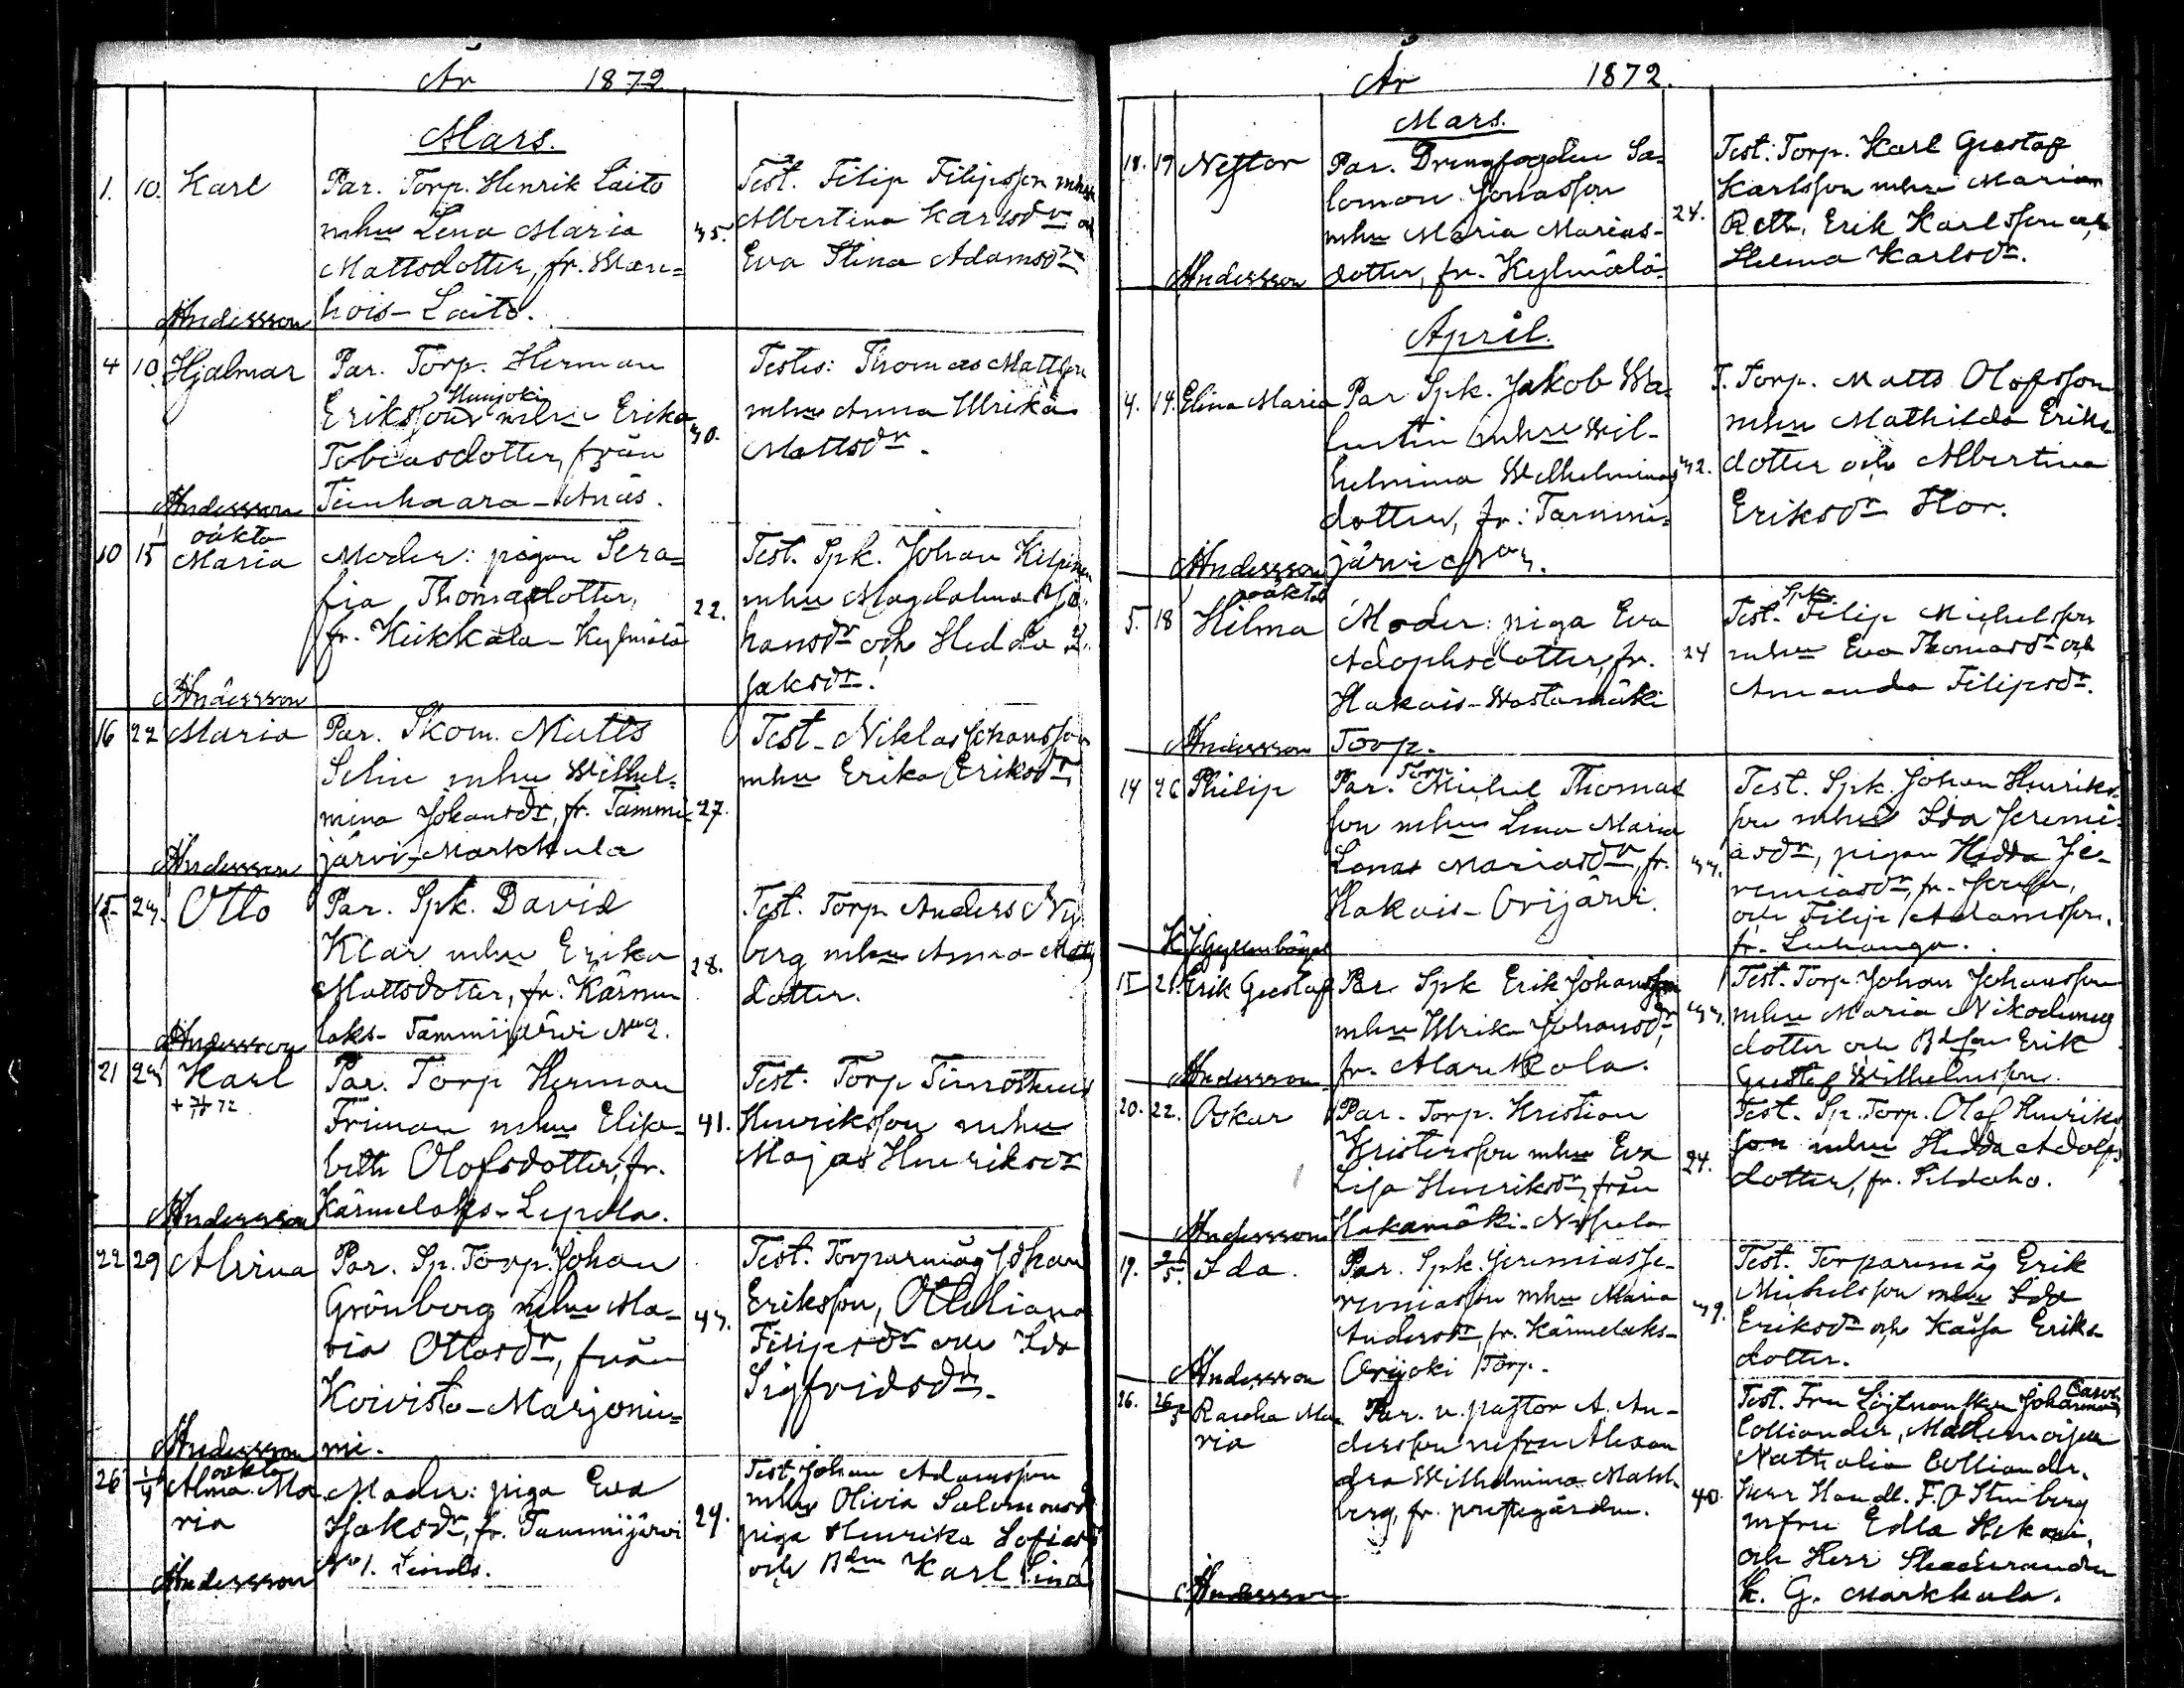 År 1872
Mars.
1. 10. Karl
Par. Torp. Henrik Laito
mhu Lena Maria
Mattsdotter, fr. Wan=
hois-Laito.
Andersson
35.
Test. Filip Filipsson mhu
Albertina Karlsdr och
Eva Stina Adamsdr
4 10. Hjalmar
Par. Torp. Herman
Hunjoki
Eriksson mhu Erika
Tobiasdotter, från
Tiuhaara-Anäs.
Andersson
30.
Testes: Thomas Mattsson
mhu Anna Ulrika
Mattsdr.
10 15 oäkta
Maria
Moder: pigan Sera=
fia Thomasdotter,
fr. Kiikkala-Kylmälä
Andersson
22.
Test. Spk. Johan Kilpinen
mhu Magdalena Jo=
hansdr och Hedda I=
saksdr.
16 22 Maria
Par. Skom. Matts
Selin mhu Wilhel=
mina Johansdr, fr. Tammi-
järvi-Markkula
Andersson
27.
Test. Niklas Johansson
mhu Erika Eriksdr
15 24. Otto
Par. Spk. David
Klar mhu Erika
Mattsdotter, fr. Kärme
laks-Tammijärvi No 2.
Andersson
28.
Test. Torp Anders Ny
berg mhu Anna Matts
dotter.
21 24 Karl
Par. Torp Herman
Friman mhu Elisa-
beth Olofsdotter, fr.
Kärmelaks-Lepola.
Andersson
41.
Test. Torp Timotheus
Henriksson mhu
Majas Henriksdr
22 29 Alvina
Par. Sp. Torp. Johan
Grönberg mhu Ma-
ria Ottosdr, från
Koivisto-Marjonie=
mi.
Andersson
43.
Test. Torparmåg Johan
Eriksson, Otteliana
Filipsdr och Ida
Sigfridsdr.
26 1/4 oäkta
Alma Ma
ria
Moder: piga Eva
Isaksdr, fr. Tammijärvi
No 1. Linds.
Andersson
29.
Test. Johan Adamsson
mhu Olivia Salomonsdr
piga Henrika Sofiasdr
och Bdn Karl Lind
År 1872.
Mars.
18. 19 Nestor
Par. Drengfogden Sa=
lomon Jonasson
mhu Maria Marias-
dotter, fr. Kylmälä.
Andersson
24.
Test. Torp. Karl Gustaf
Karlsson mhu Maria
Beth, Erik Karlsson och
Helena Karlsdr.
April.
4. 14. Elina Maria
Par Spk. Jakob Wa
lentin mhu Wil-
helmina Wilhelminas
dotter, fr. Tammi=
järvi No 3.
Andersson
32.
T. Torp. Matts Olofsson
mhu Mathilda Eriks
dotter och Albertina
Eriksdr Hor.
5. 18 oäkta
Hilma
Moder: piga Eva
Adophsdotter, fr.
Hakois-Wastamäki
Torp.
Andersson
24
Spk.
Test. Filip Michelsson
mhu Eva Thomasdr och
Amanda Filipsdr.
14 26 Philip
Torp.
Par. Michel Thomas
son mhu Lena Maria
Lenas Mariasdr, fr.
Hakois-Orijärvi.
K J Gyllenbögel
33.
Test. Spk. Johan Henriks
son mhu Ida Jeremi=
asdr, pigan Hedda Je-
remiasdr, fr.
och Filip Adamsson,
fr. Luhanga.
15 21. Erik Gustaf
Par Spk Erik Johansson
mhu Ulrika Johansdr,
fr. Markkola.
Andersson
33.
Test. Torp. Johan Johansson
mhu Maria Nikodemus
dotter och Bdson Erik
Gustaf Wilhelmsson.
20. 22. Oskar
Par. Torp. Kristian
Kristersson mhu Eva
Lisa Henriksdr, från
Hakamäki-Nissula
Andersson
24.
Test. Sp. Torp. Olof Henriks
son mhu Hedda Adolfs
dotter, fr. Sildaho.
19. 2/5. Ida.
Par. Spk. Jeremias Je-
remiasson mhu Maria
Andersdr, fr. Kärmelaks-
Orijoki Torp.
Andersson
39.
Test. Torparemåg Erik
Michelsson mhu Ida
Eriksdr och Kaisa Eriks
dotter.
26. 26/5 Rascha Ma
ria
Par. v. pastor A. An-
dersson mfru Alexan
dra Wilhelmina Mahl-
berg, fr. prestgården.
Andersson
40.
Carol.
Test. Fru Löjtnanskan Johanna
Colliander, Mademoisell
Nathalia Colliander,
Herr Handl. F. O Stenberg
mfru Edla Hekoni,
och Herr Studeranden
K. G. Markkula.